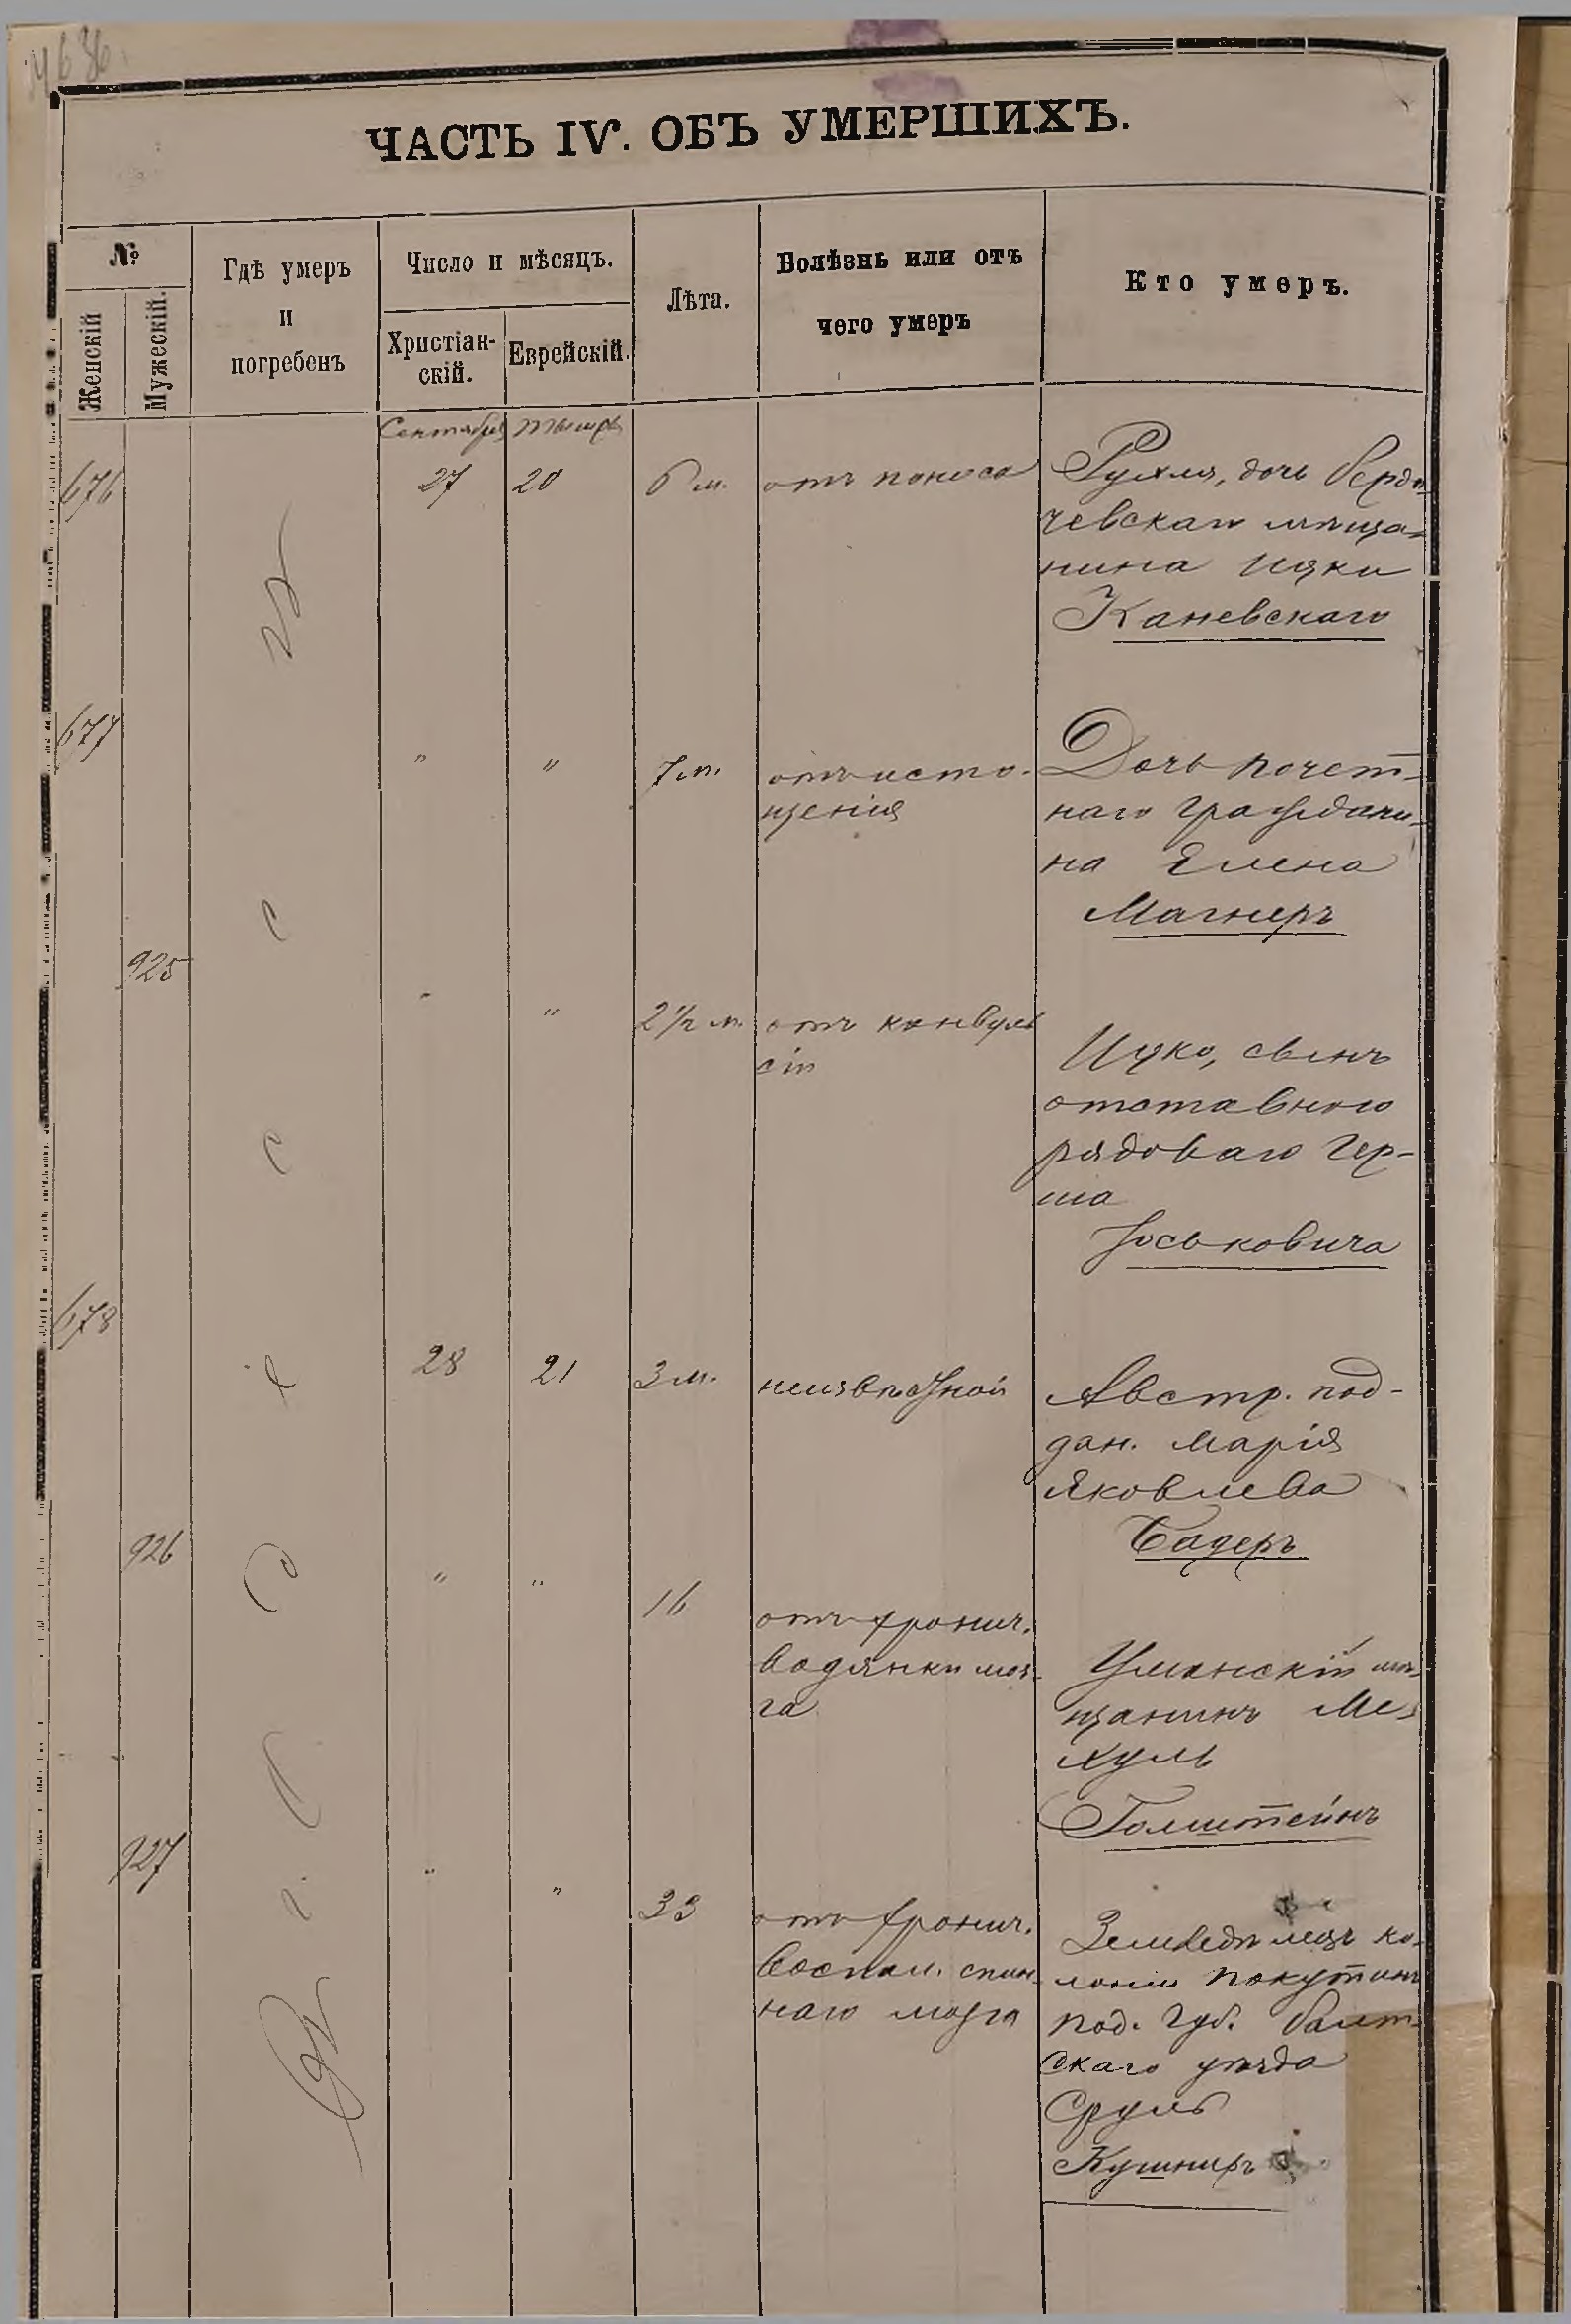 ЧАСТЬ IV. ОБЪ УМЕРШИХЪ.
№
Женскій
Мужескій.
Гдѣ умеръ
и
погребенъ
Число и мѣсяцъ.
Христіан-
скій.
Еврейскій.
Лѣта.
Болѣзнь или отъ
чего умеръ
Кто умеръ.
Сентября Тишри
676 27 20 6 м. отъ поноса Рухля, дочь берди-
чевскаго мѣща-
нина Ицки
Каневскаго
677 " " 7 м. отъ исто- Дочь почет-
щенія наго граждани-
на Елена
Магнеръ
925 " " 2 1/2 м. отъ конвуль
сій Ицко, сынъ
отставного
рядоваго Гер-
ша
Іоськовича
678 28 21 3 м. неизвѣстной Австр. под-
дан. Марія
Яковлева
Бадеръ
926 " " 16 отъ хронич.
водянки моз- Уманскій мѣ-
га щанинъ Ме-
хуль
Голштейнъ
927 " " 33 отъ хронич. Земледѣлецъ ко-
воспал. спин- лоніи Покутинъ
наго мозга под. губ. балт-
скаго уѣзда
Сруль
Кушниръ